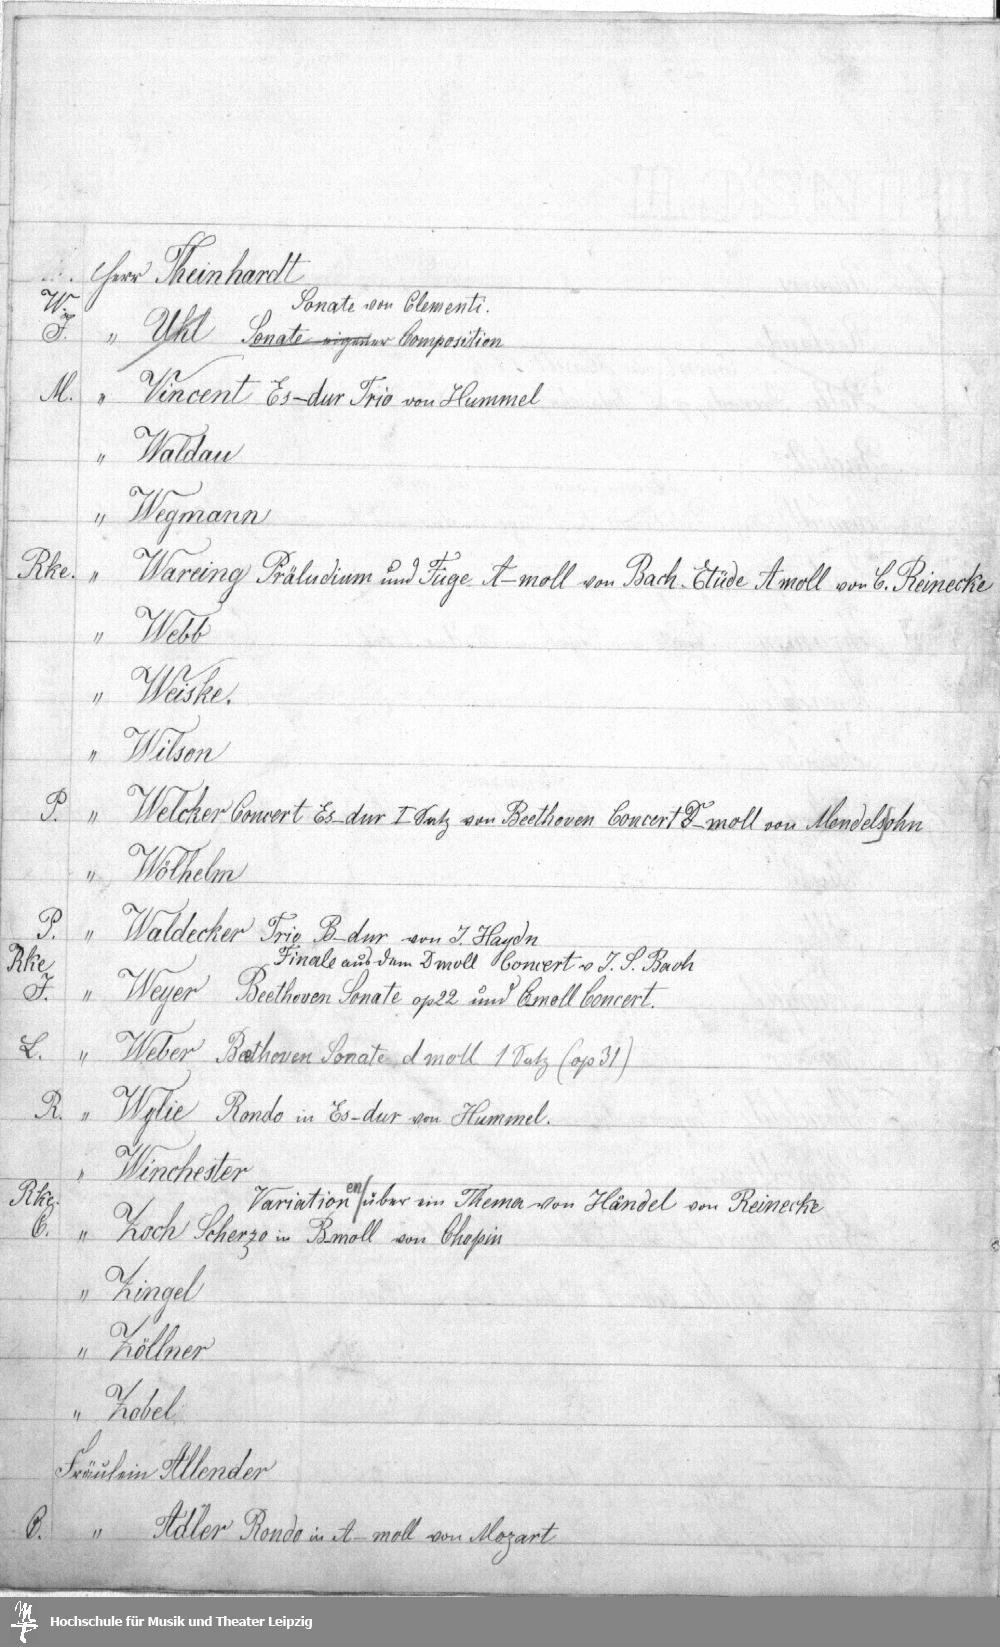 Herr Theinhardt
W. Sonate von Clementi.
J. " Uhl Sonate eigener Composition
M. " Vincent Es-dur Trio von Hummel
" Waldau
" Wegmann
Rke. " Wareing Präludium und Fuge A-moll von Bach. Etüde A moll von C. Reinecke
" Webb
" Weiske.
" Wilson
P. " Welcker Concert Es-dur I Satz von Beethoven Concert D-moll von Mendelsohn
" Wölhelm
P. " Waldecker Trio B-dur von J. Haydn
Rke Finale aus dem D moll Concert v J. S. Bach
J. " Weyer Beethoven Sonate op22 und C moll Concert.
L. " Weber Beethoven Sonate d moll 1 Satz (op 31)
R. " Wylie Rondo in Es-dur von Hummel.
" Winchester
Rke. Variationen über ein Thema von Händel von Reinecke
C. " Zoch Scherzo in B-moll von Chopin
" Zingel
" Zöllner
" Zobel
Fräulein Allender
C. " Adler Rondo in A-moll von Mozart
Hochschule für Musik und Theater Leipzig